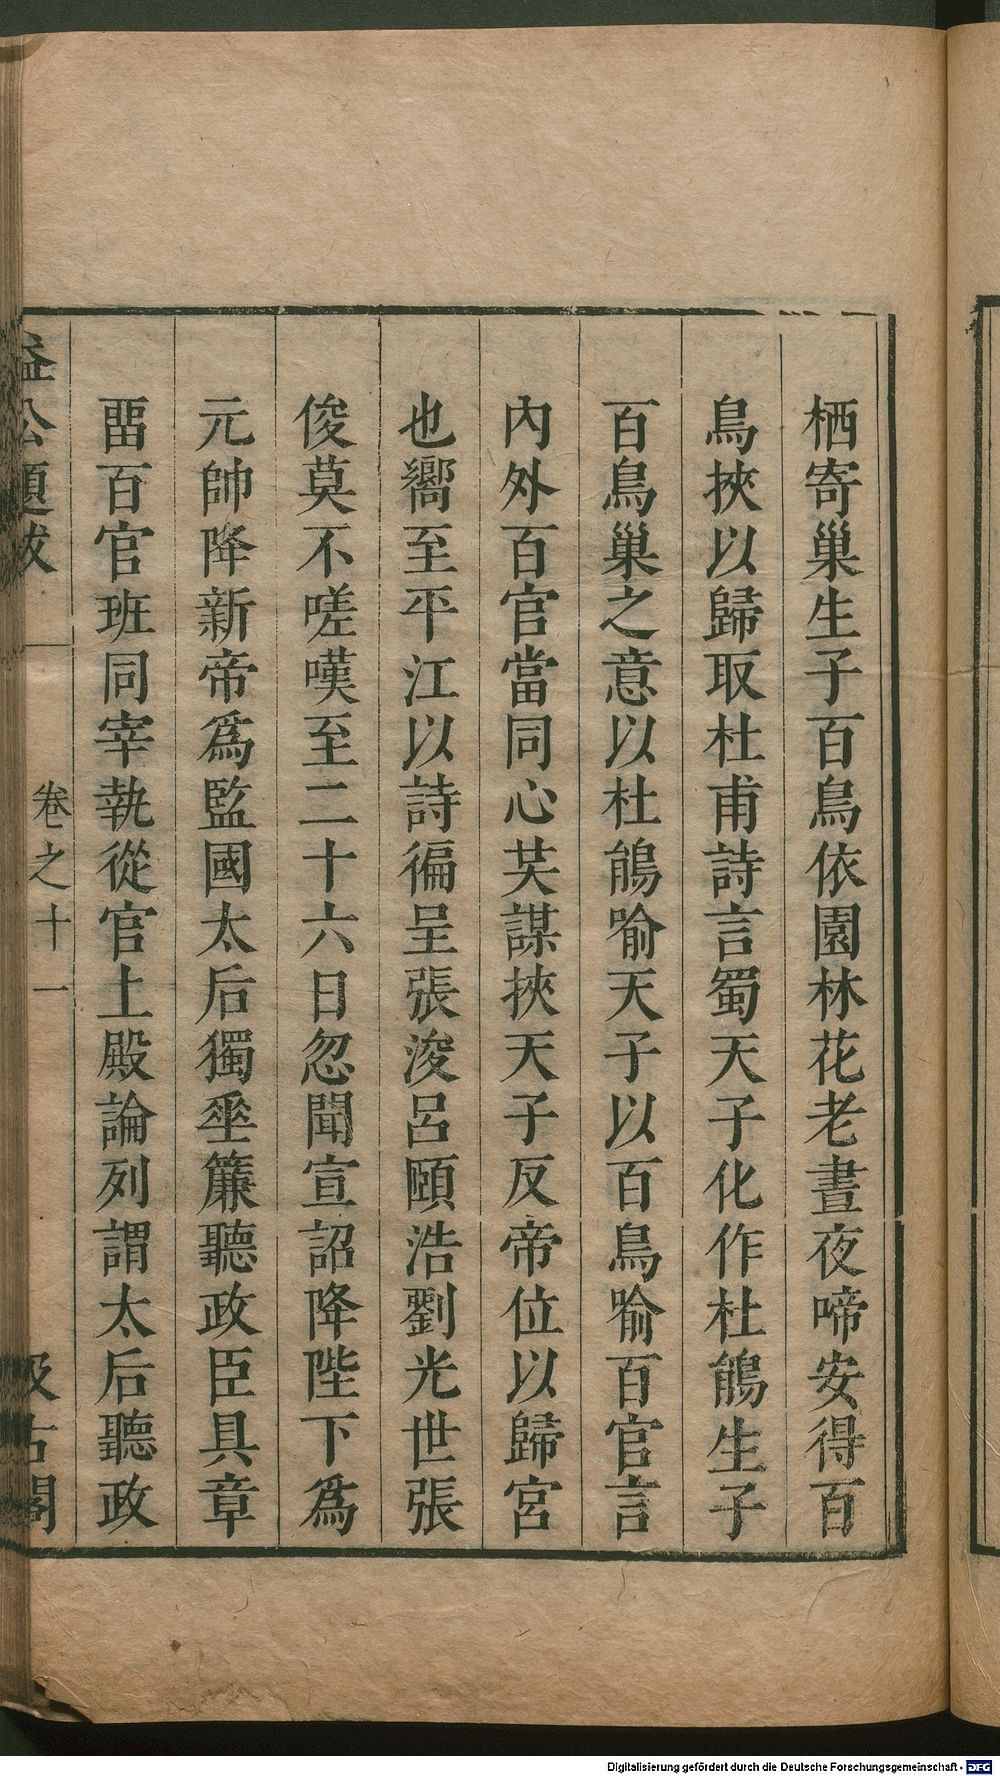 栖寄巢生子百鳥依園林花老晝夜啼安得百
鳥挾以歸取杜甫詩言蜀天子化作杜鵑生子
百鳥巢之意以杜鵑喻天子以百鳥喻百官言
內外百官當同心共謀挾天子反帝位以歸宮
也嚮至平江以詩徧呈張浚呂頤浩劉光世張
俊莫不嗟嘆至二十六日忽聞宣詔降陛下爲
元帥降新帝爲監國太后獨坐簾聽政臣具章
畱百官班同宰執從官上殿論列謂太后聽政
益公題跋
卷之十一
汲古閣
Digitalisierung gefördert durch die Deutsche Forschungsgemeinschaft - DFG